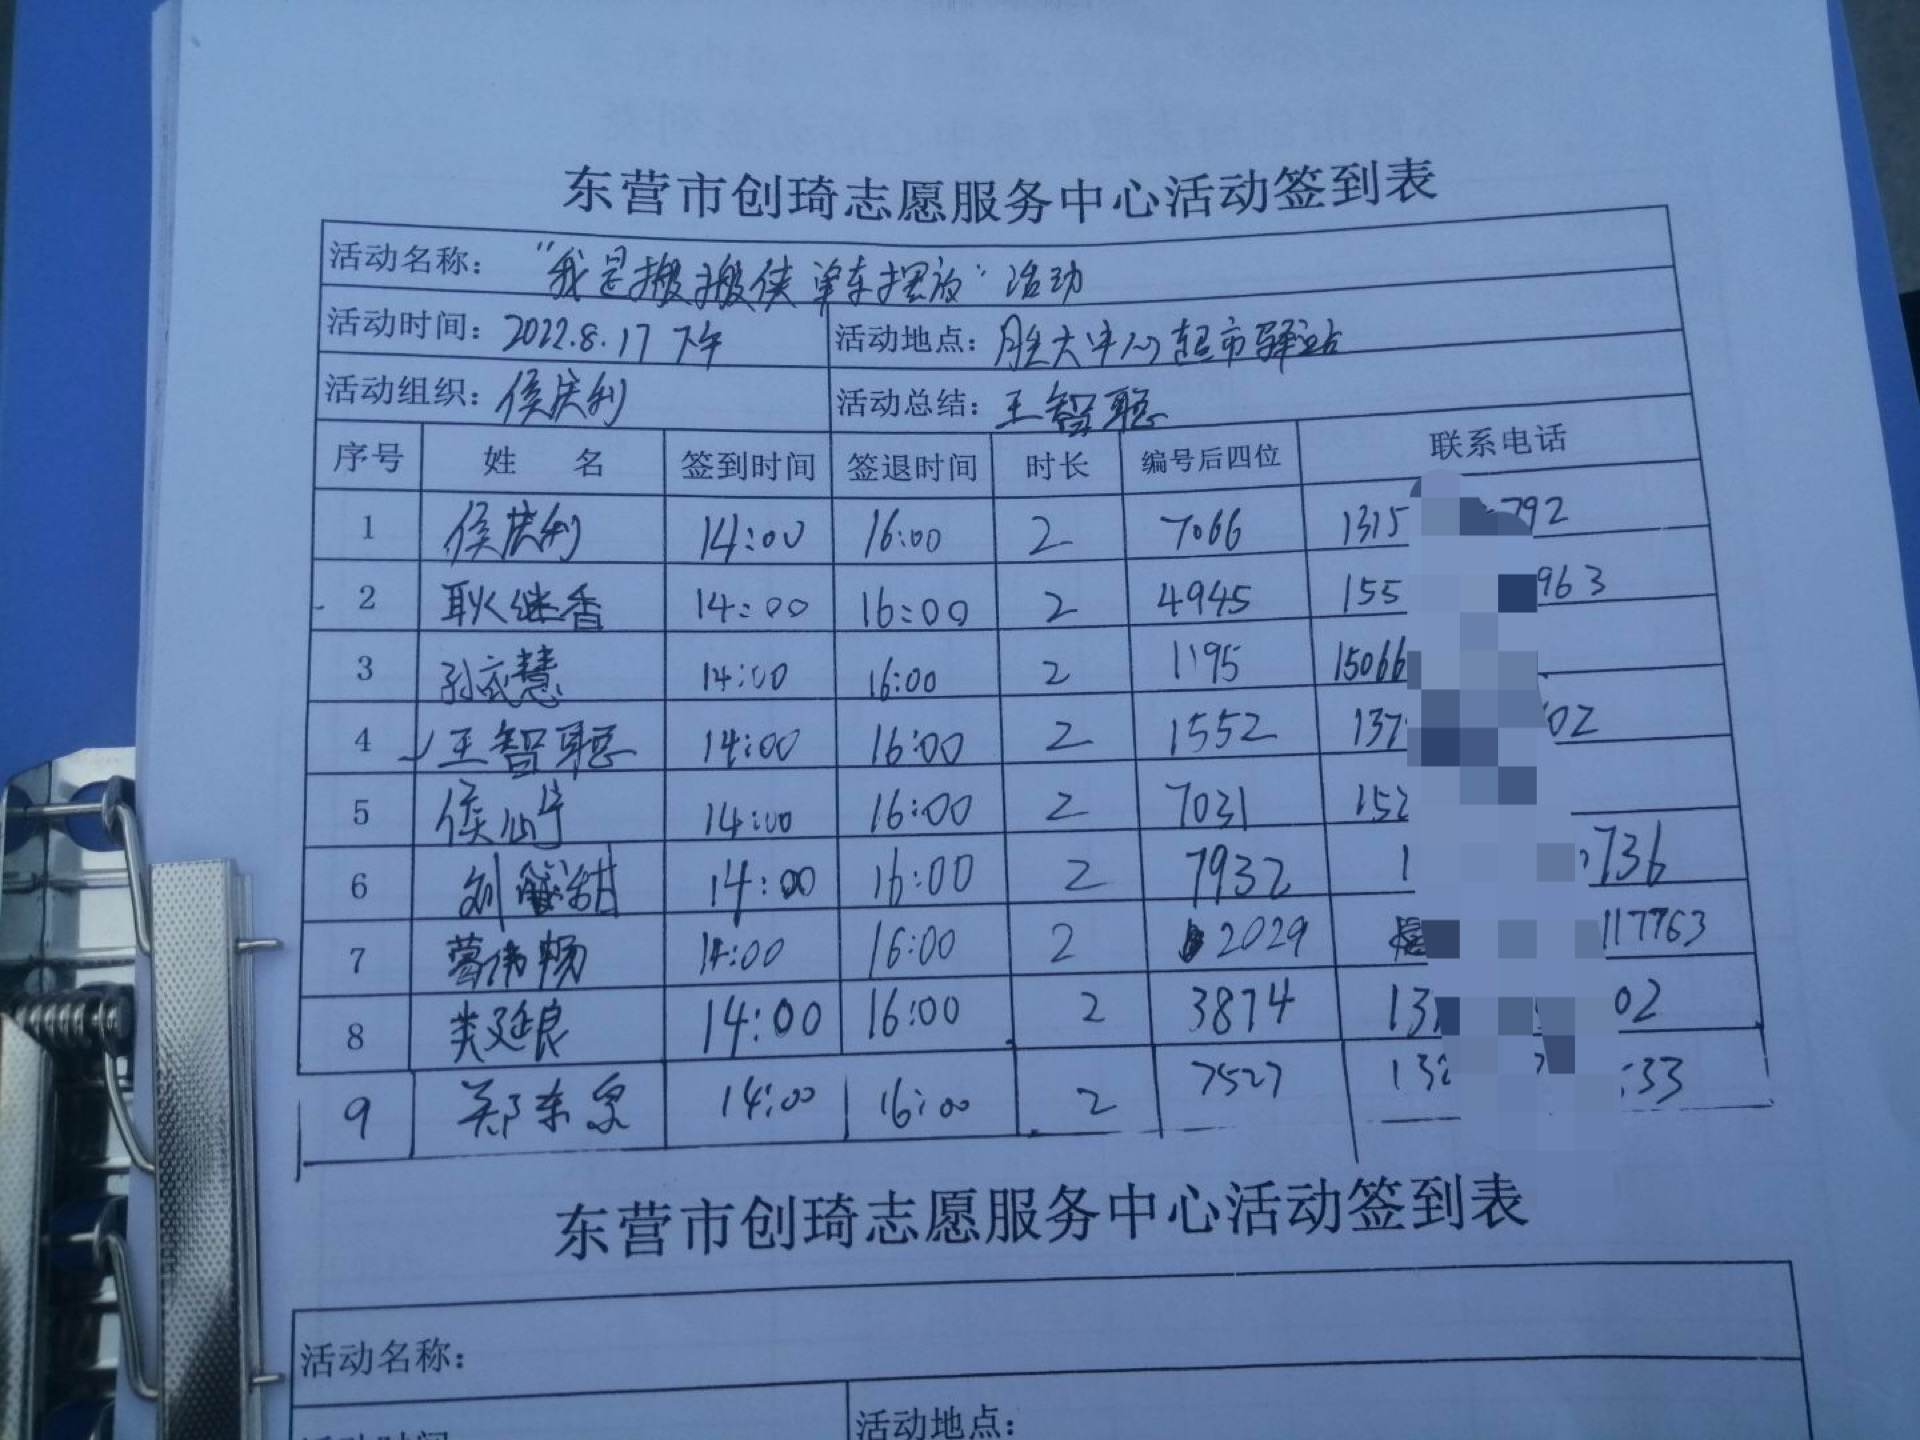 东营市创琦志愿服务中心活动签到表
活动名称： “我是搬搬侠 单车摆放” 活动
活动时间： 2022.8.17 下午 活动地点： 胜大中心超市驿站
活动组织： 侯庆利 活动总结： 王智聪
序号 姓 名 签到时间 签退时间 时长 编号后四位 联系电话
1 侯庆利 14:00 16:00 2 7066 1315 792
2 耿继香 14:00 16:00 2 4945 155 963
3 孙 慧 14:00 16:00 2 1195 15066
4 王智聪 14:00 16:00 2 1552 137 02
5 侯 14:00 16:00 2 7031 152
6 刘 甜 14:00 16:00 2 7932 1 736
7 葛伟畅 14:00 16:00 2 2029 117763
8 延良 14:00 16:00 2 3874 13 02
9 郑东泉 14:00 16:00 2 7527 13 33
东营市创琦志愿服务中心活动签到表
活动名称：
活动时间 活动地点：